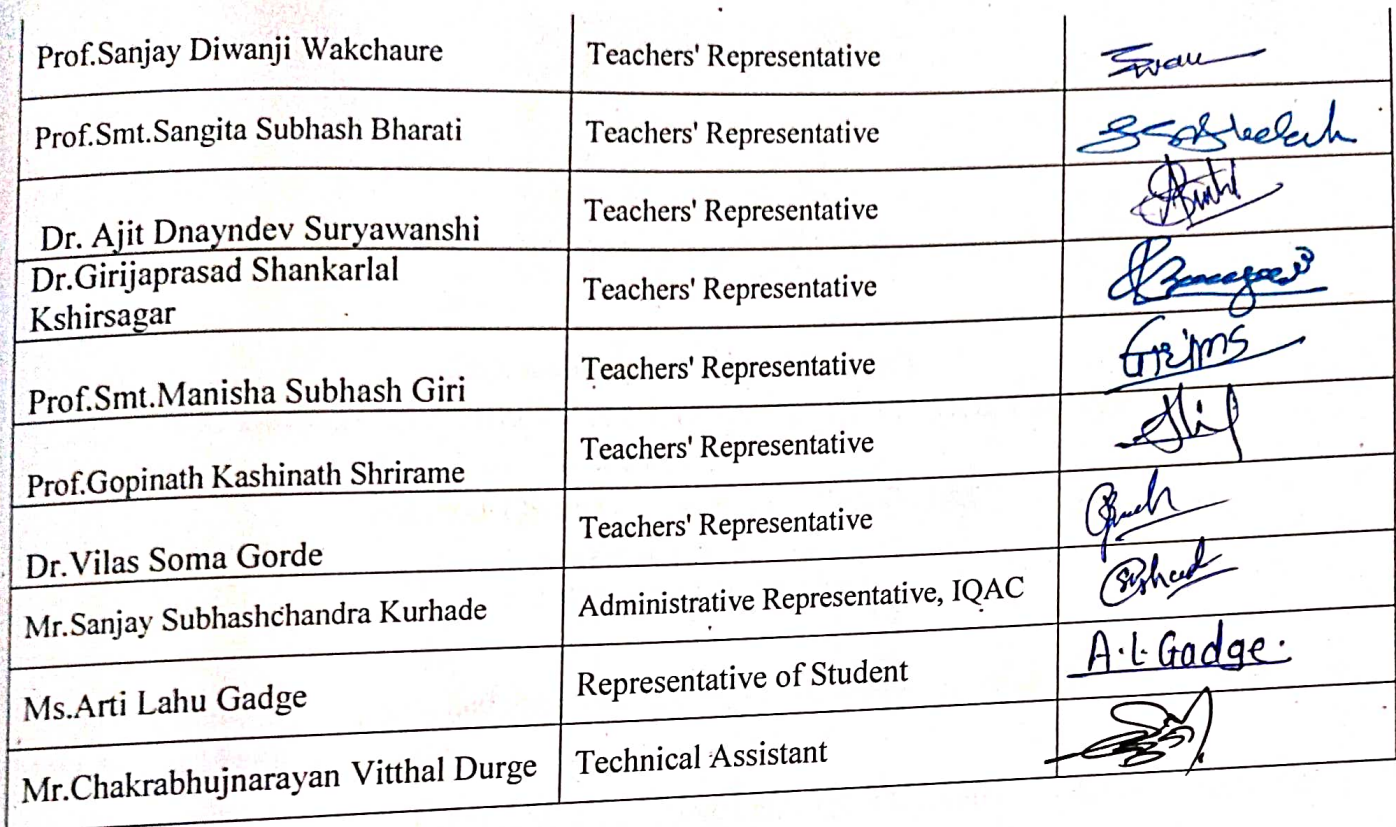 Prof.Sanjay Diwanji Wakchaure Teachers' Representative
Prof.Smt.Sangita Subhash Bharati Teachers' Representative
Dr. Ajit Dnayndev Suryawanshi Teachers' Representative
Dr.Girijaprasad Shankarlal
Kshirsagar Teachers' Representative
Prof.Smt.Manisha Subhash Giri Teachers' Representative
Prof.Gopinath Kashinath Shrirame Teachers' Representative
Dr.Vilas Soma Gorde Teachers' Representative
Mr.Sanjay Subhashchandra Kurhade Administrative Representative, IQAC
Ms.Arti Lahu Gadge Representative of Student A.L.Gadge.
Mr.Chakrabhujnarayan Vitthal Durge Technical Assistant